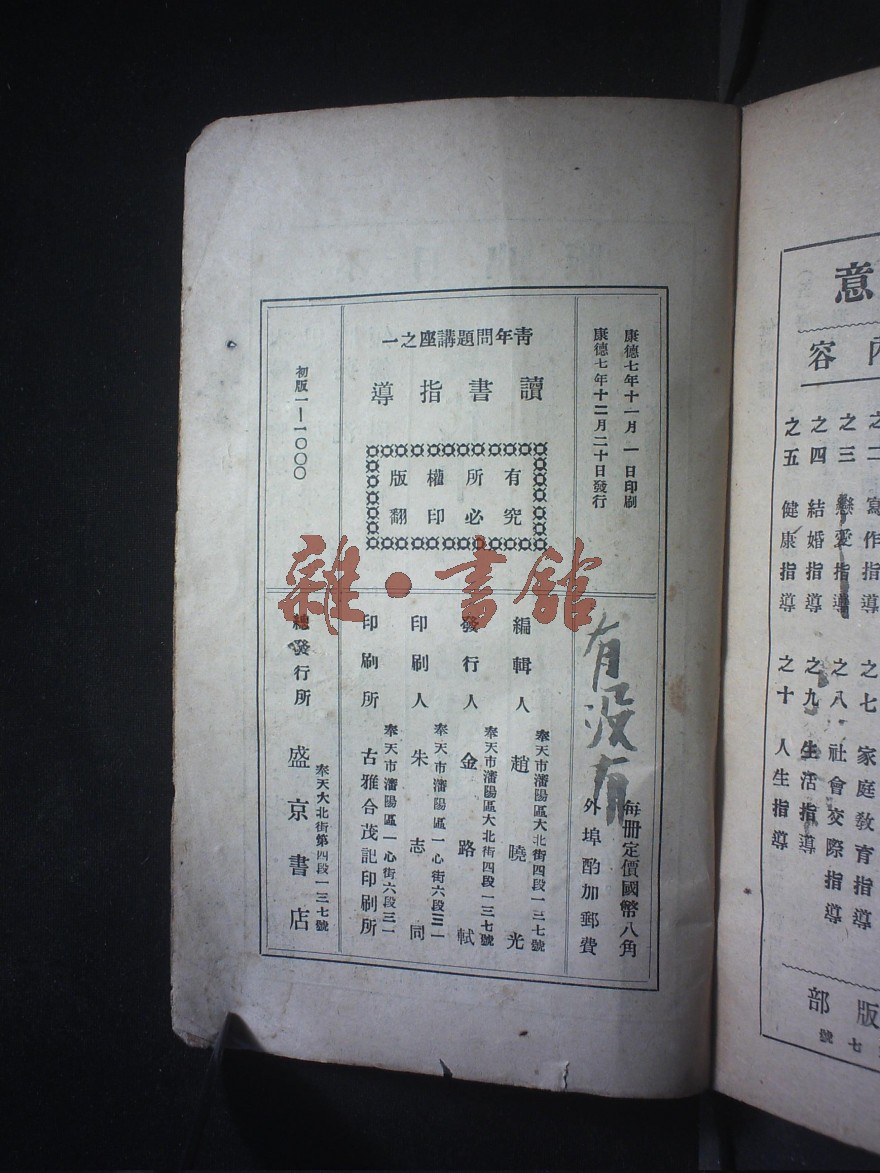 意
內容
之二 寫作指導
之三 戀愛指導
之四 結婚指導
之五 健康指導
之七 家庭敎育指導
之八 社會交際指導
之九 生活指導
之十 人生指導
版部
七號
康德七年十一月 一日印刷
康德七年十二月二十日發行
每冊定價國幣八角
外埠酌加郵費
有沒有
青年問題講座之一
讀書指導
版權所有
翻印必究
編輯人 奉天市瀋陽區大北街四段一三七號 趙曉光
發行人 奉天市瀋陽區大北街四段一三七號 金路軾
印刷人 奉天市瀋陽區一心街六段三一 朱志同
印刷所 奉天市瀋陽區一心街六段三一 古雅合茂記印刷所
初版一—一〇〇〇
總發行所 奉天大北街第四段一三七號 盛京書店
雜·書館